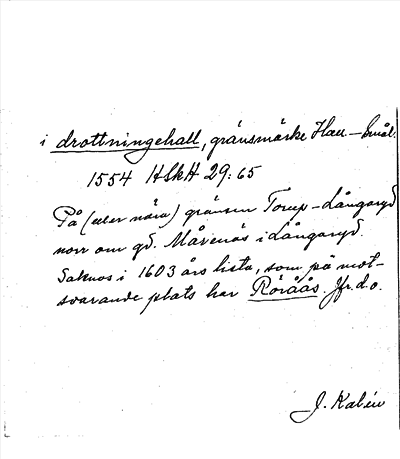 i drottningehall, gränsmärke Hall – Smål.
1554 HSkH 29:65
På (eller nära) gränsen Torup – Långaryd
norr om gd. Mårenäs i Långaryd.
Saknas i 1603 års lista, som på mot-
svarande plats har Röråås. Jfr. d.o.
J. Kalén